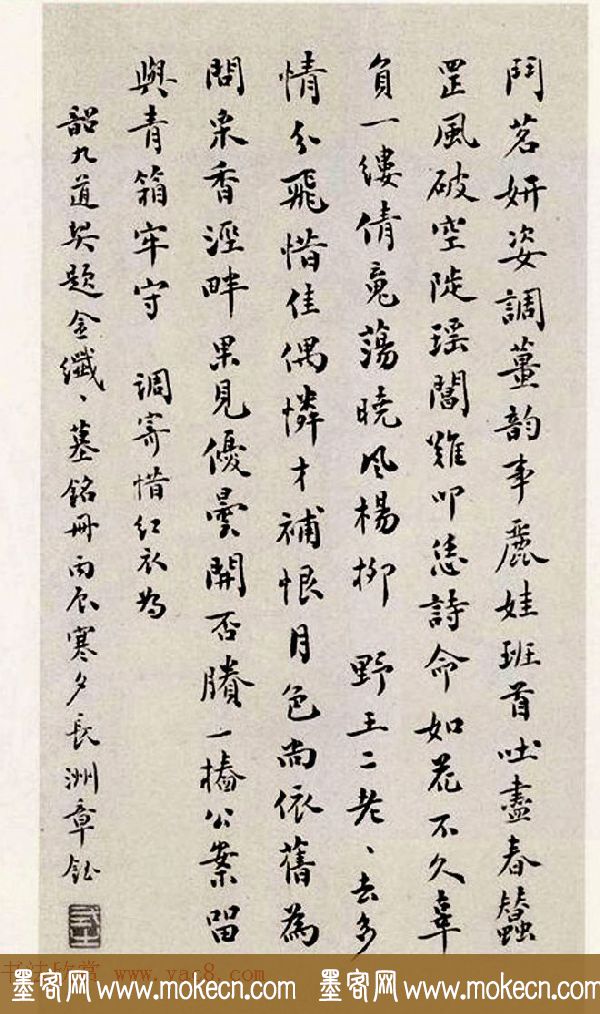 鬥茗妍姿調薑韵事麗娃班首吐盡春蠶
罡風破空陡瑤閶難叩恁詩命如花不久辜
負一縷倩魂蕩曉風楊柳 野王二老、去多
情分飛惜佳偶憐才補恨月色尚依舊為
問采香涇畔果見優曇開否賸一樁公案留
與青箱牢守 調寄惜紅衣為
韶九道契題金纖、墓銘冊丙辰寒夕長洲章鈺
书法欣赏 www.yac8.com
墨客网 www.mokecn.com 墨客网 www.mokecn.com